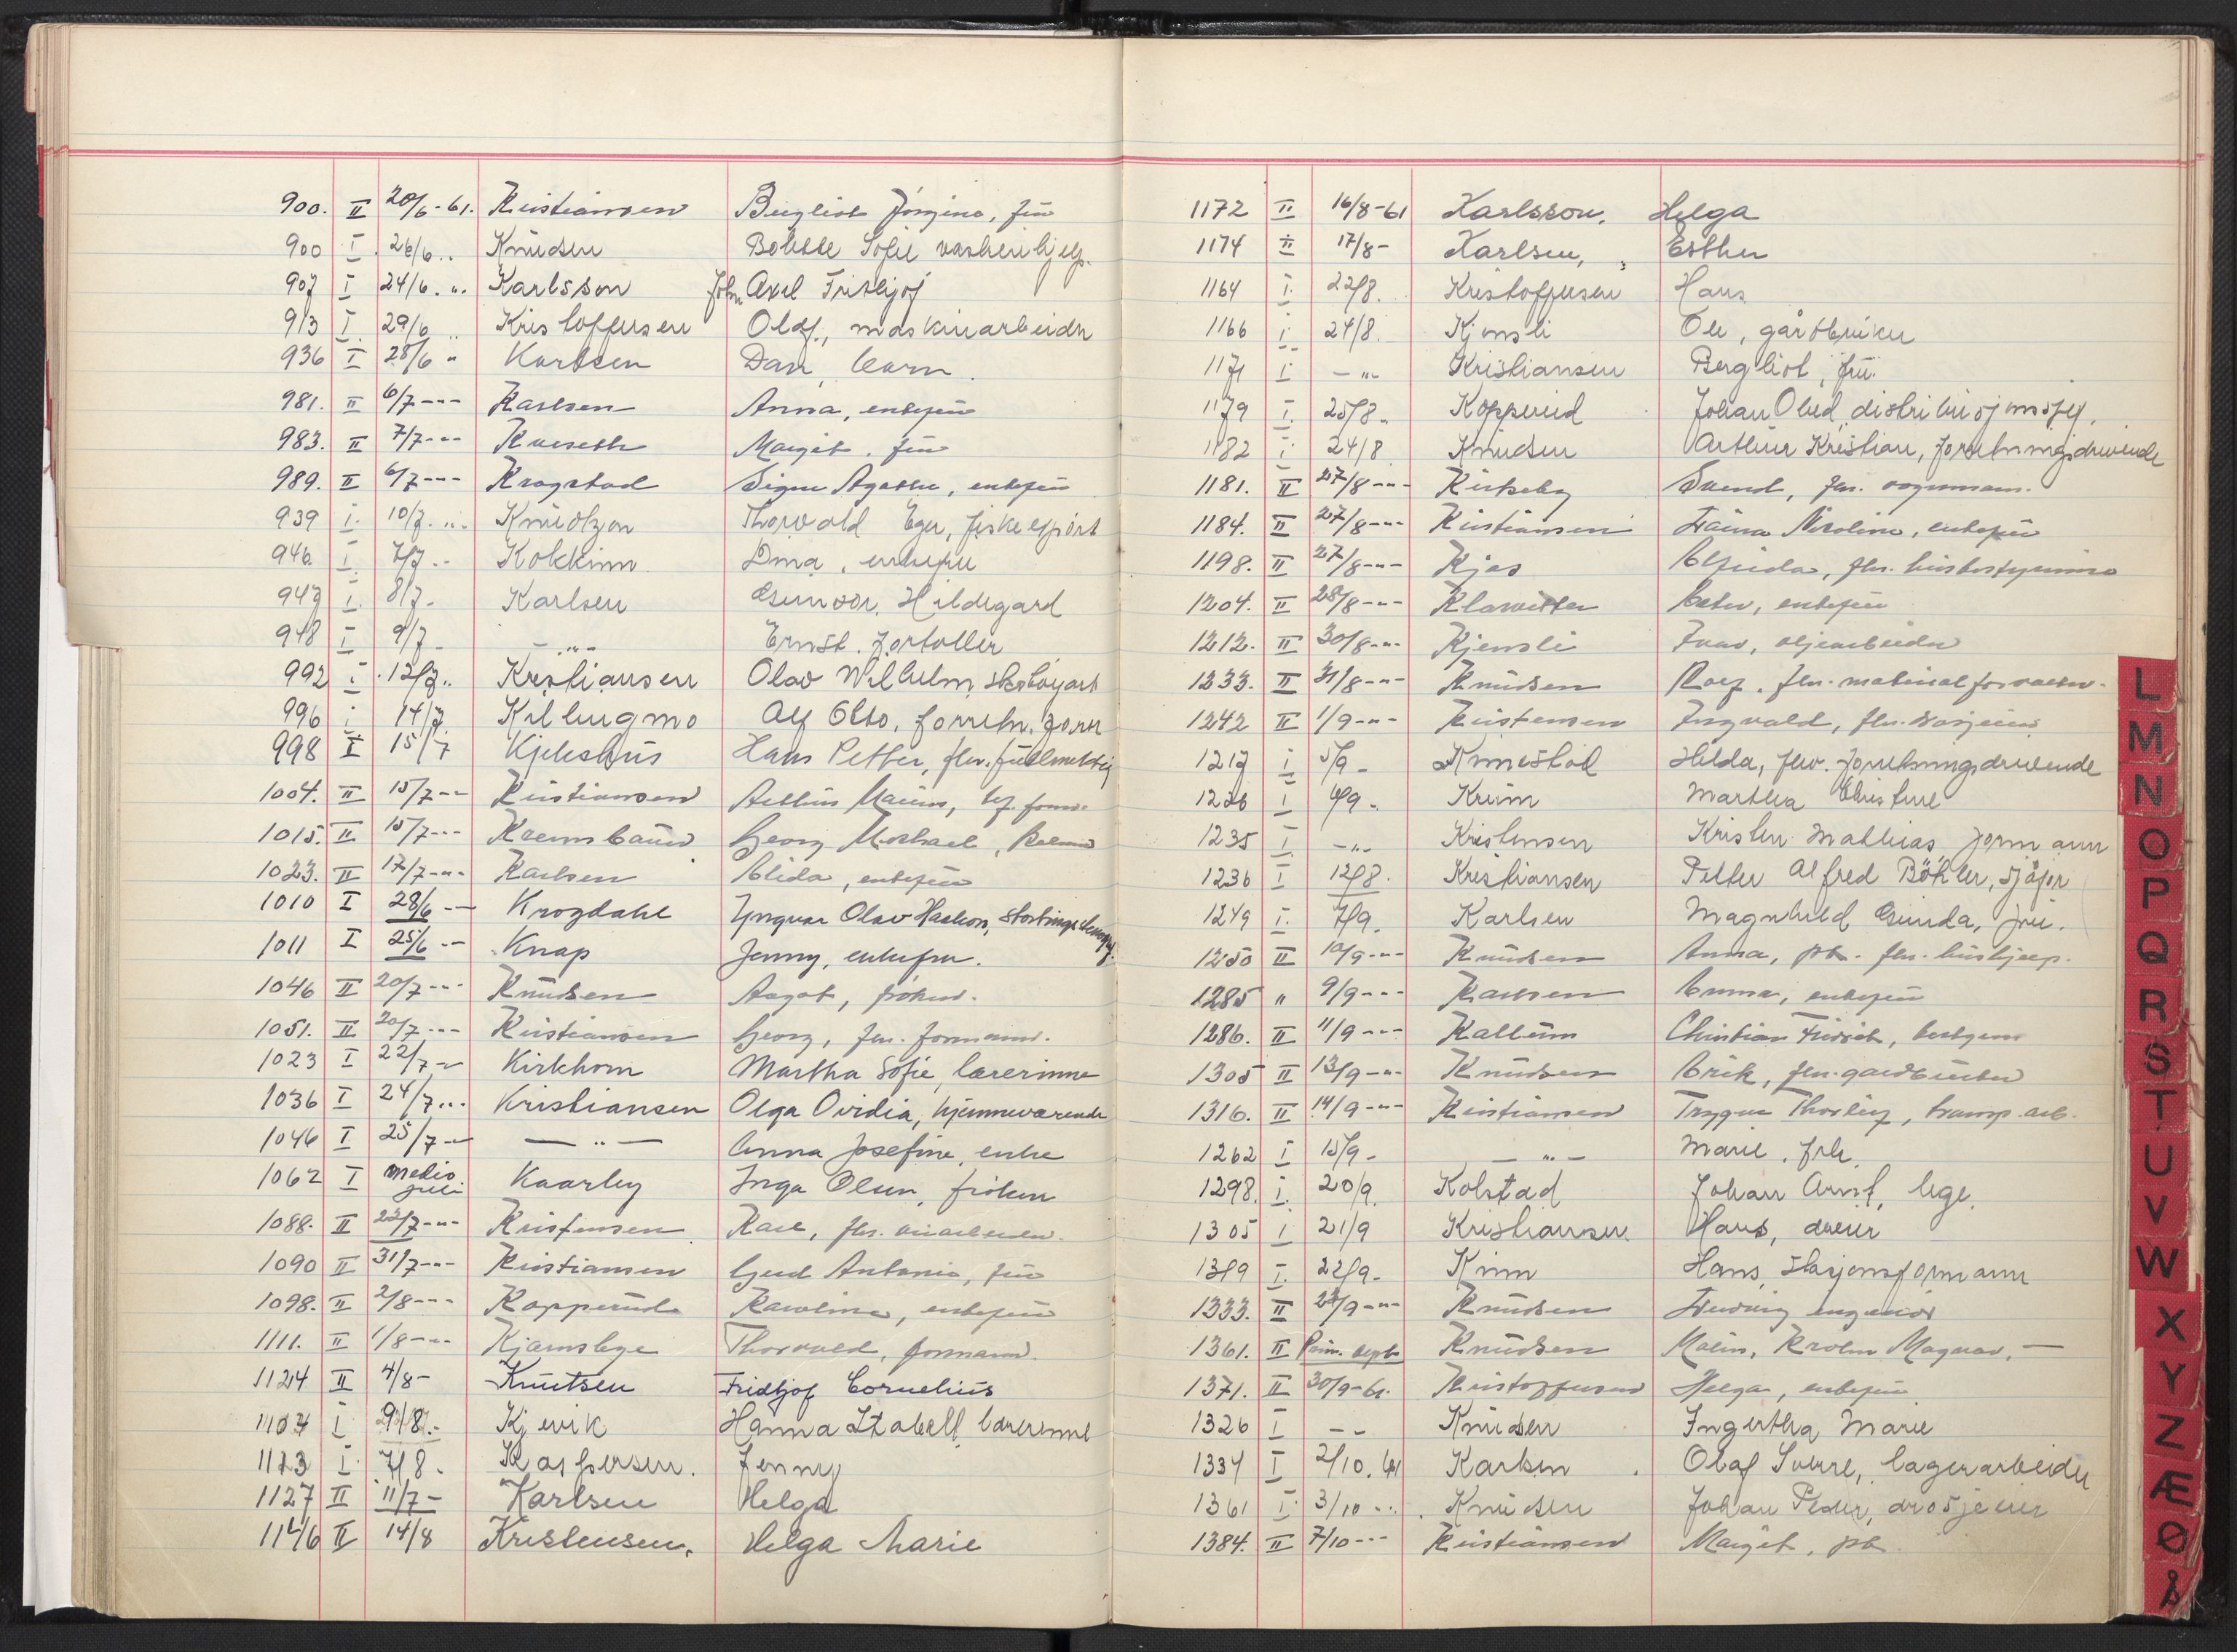 900. II 20/6-61. Kristiansen Bergliot Jørgine, fru
900 I. 26/6 .. Knudsen Bolette Sofie vaskerihjelp.
907 I 24/6. ". Karlsson John Axel Frithjof
913 I. 29/6 .. Kristoffersen Olaf., maskinarbeider
936 I 28/6 " Karlsen Dan, barn.
981. II 6/7 -"- Karlsen Anna, enkefru
983. II 7/7 -"- Margit, fru
989. II 6/7 -"- Krogstad Signe Agathe, enkefru
939 I. 10/7. ". Knudtzon Thorvald Eger, fiskeeksport
946. I. 7/7 .. Kokkinn Dina, enkefru
947 I. 8/7 - Karlsen Gunvor, Hildegard
948 I 9/7 - - " - Ernst. fortoller
992 I 12/7.. Kristiansen Olav Wilhelm,
996 I 14/7 Killingmo Alf Otto, forretn.
998 I 15/7 Kjekshus Hans Petter, fhv. fullmektig
1004. II 15/7 -"- Kristiansen Arthur
1015. II 15/7 -"- Georg Michael,
1023. II 17/7 -"- Karlsen Elida, enkefru
1010 I 28/6 - Krogdahl Yngvar Olav Haakon,
1011 I 25/6 .- Knap Jenny, enkefru.
1046 II 20/7 -"- Knudsen Aagot, frøken.
1051. II 20/7 -"- Kristiansen Georg, fhv. formann.
1023 I 22/7 -"- Kirkhorn Martha Sofie, lærerinne
1036 I 24/7 ... Kristiansen Olga Ovidia, hjemmeværende
1046 I 25/7 -"- — " — Anna Josefine, enke
1062 I medio juli Kaarby Inga Olsen, frøken
1088. II 23/7 -"- Kristensen Kare, fhv.
1090 II 31/7 -"- Kristiansen Gerd Antonie, fru
1098. II 2/8 -"- Kopperud Karoline, enkefru
1111. II 1/8 -"- Thorvald, formann.
1124 II 4/8 - Knutsen Fridtjof Cornelius
1107 I 9/8.- Kjevik Hanna Isabell, lærerinne
1123 I 7/8. Kaspersen. Jenny
1127 II 11/7 - Karlsen Helga
1146 II 14/8 Kristensen, Helga Marie
1172 II 16/8-61 Karlsson, Helga
1174 II 17/8 - Karlsen, Esther
1164 I. 22/8. Kristoffersen Hans
1166 I. 24/8. Kjensli Ole, gårdbruker
1171 I - " - Kristiansen Bergliot, fru.
1179 I. 25/8. Kopperud Johan Obed, distribusjonssjef.
1182 I 24/8 Knudsen Arthur Kristian, forretningsdrivende
1181. II 27/8 -"- Kirkeby Svend, fhv. vognmann.
1184. II 27/8 -"- Kristiansen Nicoline, enkefru
1198. II 27/8 -"- Kjos fhv. husbestyrerinne
1204. II 28/8 -"- Klawitter enkefru
1212. II 30/8 -"- Kjensli Ivar, oljearbeider
1233. II 31/8 -"- Knudsen Rolf, fhv. materialforvalter.
1242 II 1/9 -"- Kristensen Ingvald, fhv.
1217 I 5/9 - Knnestol Hilda, fhv. forretningsdrivende
1226 I 9/9 - Krum Martha Christine
1235 I - " - Kristensen Kristen Mathias formann
1236 I 12/8. Kristiansen Petter Alfred Böhler, sjåfør
1249 I. 7/9. Karlsen Magnhild Gunda, fru.
1250 II 10/9 -"- Knudsen Anna, fhv. hushjelp.
1285 " 9/9 -"- Karlsen enkefru
1286. II 11/9 -"- Kallum Christian
1305 II 13/9 -"- Knudsen Erik, fhv. gardbruker
1316. II 14/9 -"- Kristiansen Trygve Thorleif, transp. arb.
1262 I 15/9 - - " - Marie, frk.
1298. I. 20/9. Kolstad Johan Arnt, lege.
1305 I 21/9 Kristiansen. Hans, dreier
1319 I. 22/9 - Krim Hans, stasjonsformann
1333. II 23/9 -"- Knudsen Ludvig
1361. II Prim. sept. Knudsen Malin, —
1371. II 30/9-61. Kristoffersen Helga, enkefru
1326 I - - Knudsen Ingertha Marie
1334 I 2/10. 61 Karlsen Olaf Sverre, lagerarbeider
1361 I 3/10 ... Knudsen Johan Peder, drosjeeier
1384. II 7/10 -"- Kristiansen Margit,
L
M
N
O
P
Q
R
S
T
U
V
W
X
Y
Z
Æ
Ø
Å